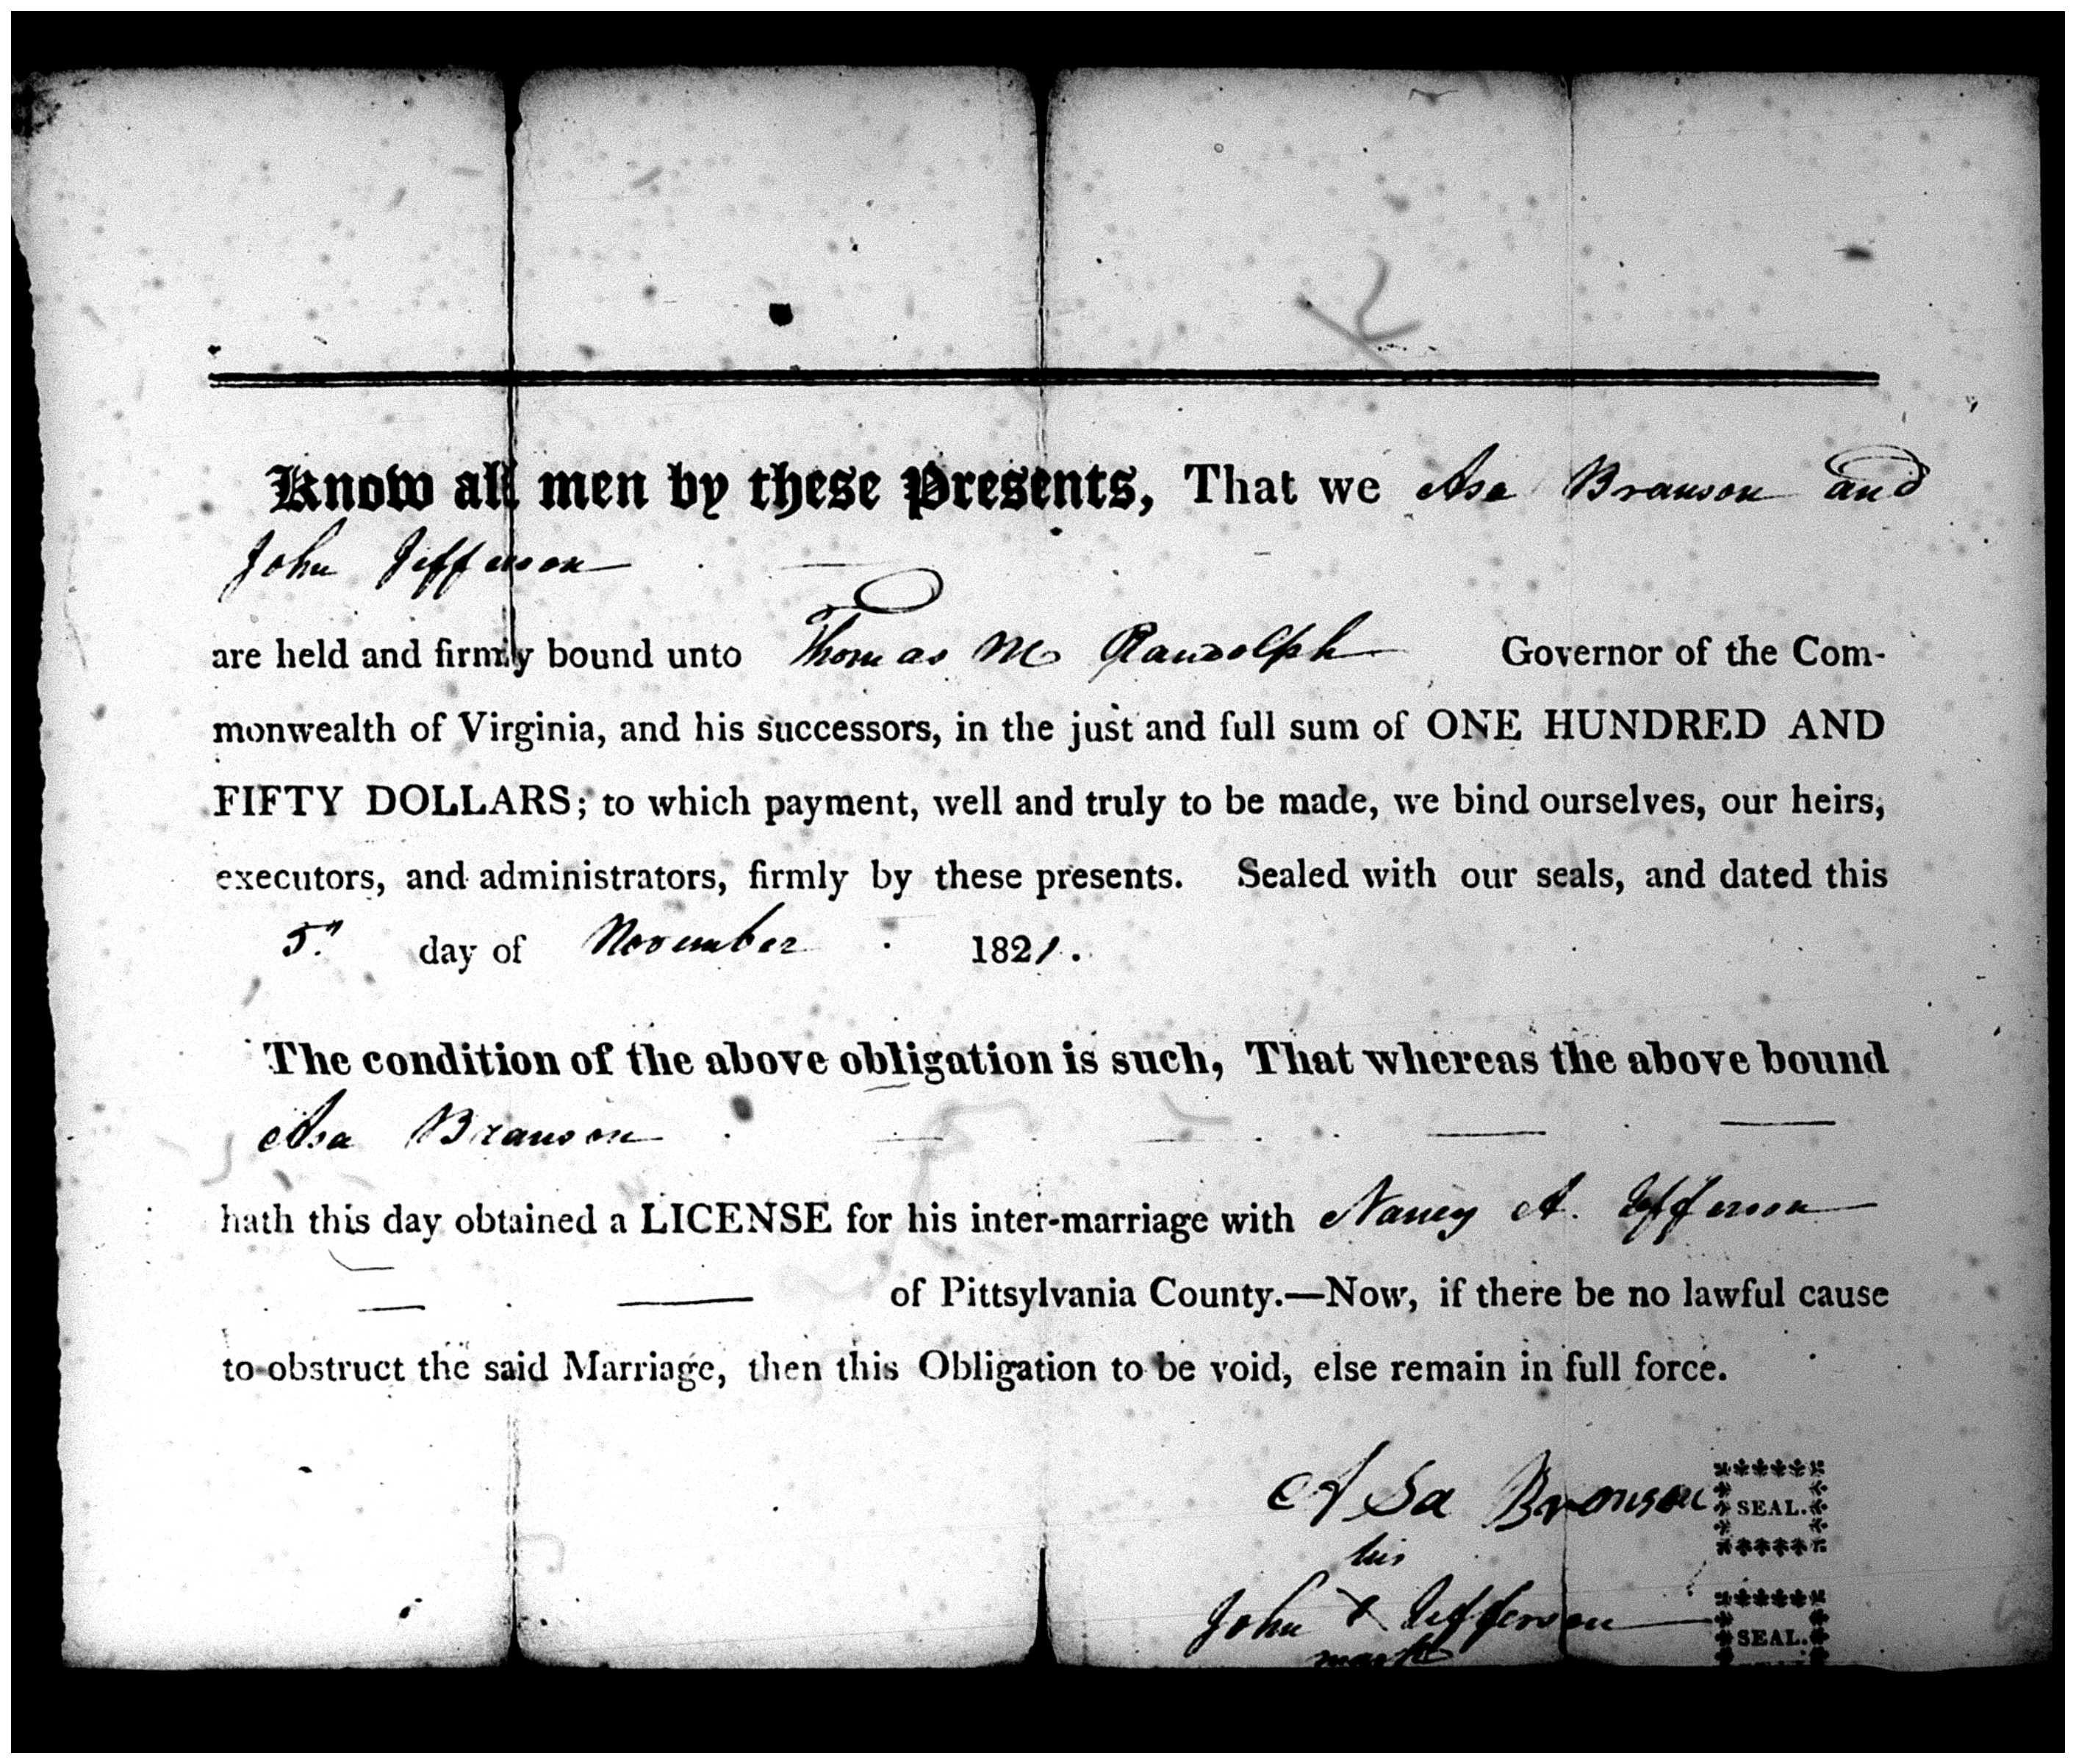 Know all men by these Presents, That we Asa Branson and
John Jefferson
are held and firmly bound unto Thomas M Randolph Governor of the Com-
monwealth of Virginia, and his successors, in the just and full sum of ONE HUNDRED AND
FIFTY DOLLARS; to which payment, well and truly to be made, we bind ourselves, our heirs,
executors, and administrators, firmly by these presents. Sealed with our seals, and dated this
5th day of November 1821.
The condition of the above obligation is such, That whereas the above bound
Asa Branson
hath this day obtained a LICENSE for his inter-marriage with Nancy A. Jefferson
of Pittsylvania County.—Now, if there be no lawful cause
to obstruct the said Marriage, then this Obligation to be void, else remain in full force.
Asa Bronson SEAL.
his
John X Jefferson SEAL.
mark